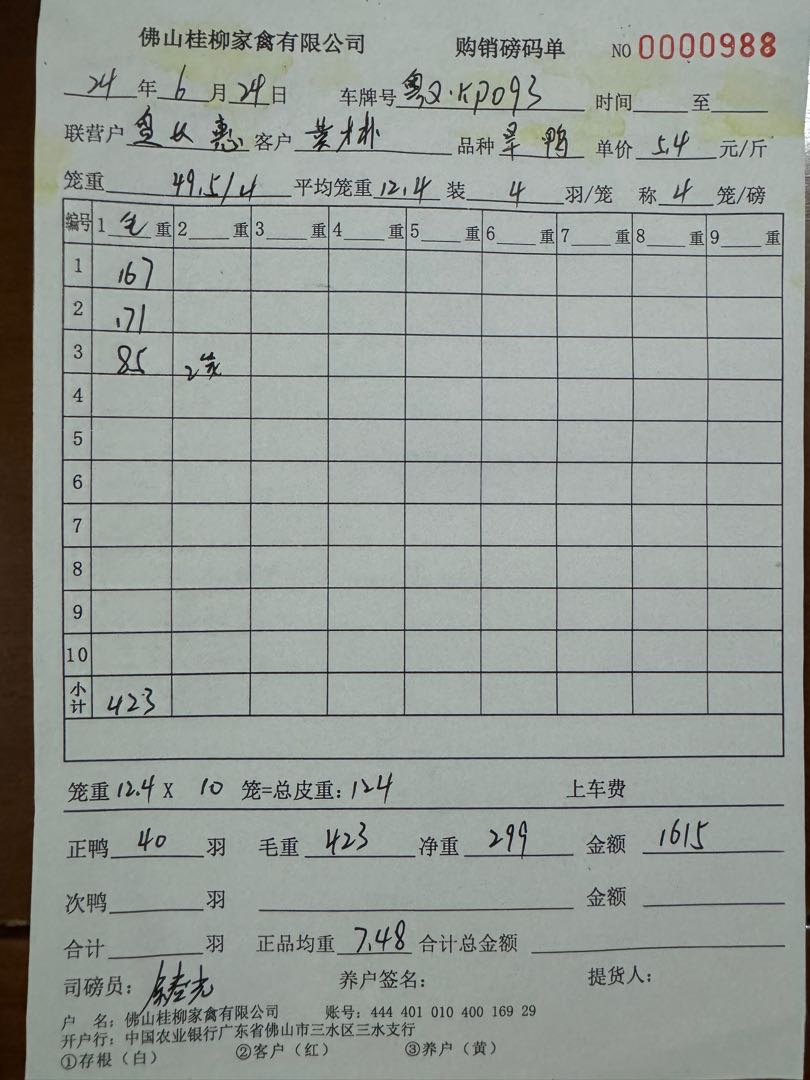 佛山桂柳家禽有限公司 购销磅码单 NO 0000988
24年6月24日 车牌号 粤 KP093 时间 至
联营户 惠 客户 黄 品种 鸭 单价 5.4 元/斤
笼重 49.5/4 平均笼重 12.4 装 4 羽/笼 称 4 笼/磅
编号 1 毛 重 2 重 3 重 4 重 5 重 6 重 7 重 8 重 9 重
1 167
2 171
3 85 2笼
4
5
6
7
8
9
10
小计 423
笼重 12.4 X 10 笼=总皮重: 124 上车费
正鸭 40 羽 毛重 423 净重 299 金额 1615
次鸭 羽 金额
合计 羽 正品均重 7.48 合计总金额
司磅员: 养户签名: 提货人:
户 名: 佛山桂柳家禽有限公司 账号: 444 401 010 400 169 29
开户行: 中国农业银行广东省佛山市三水区三水支行
①存根(白) ②客户(红) ③养户(黄)